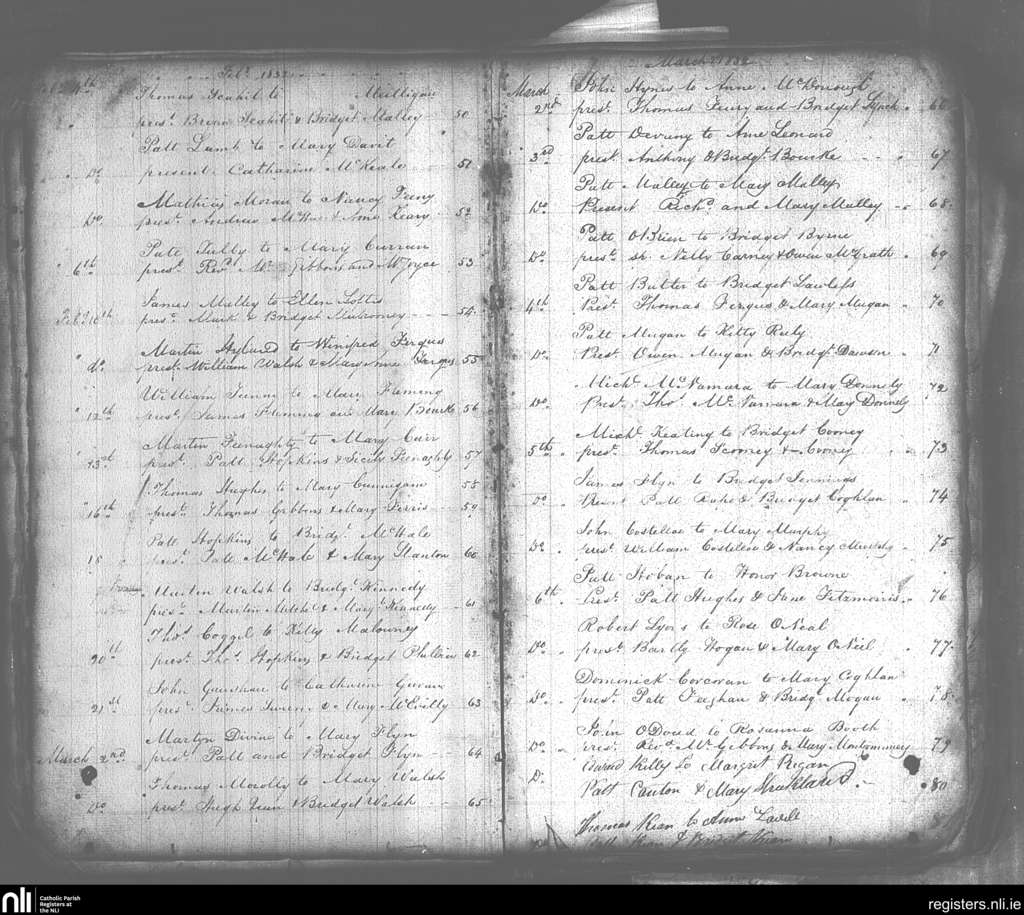 Feby 1832
4th Thomas Scahil to Mulligan
prest Scahil & Bridget Malley 50
Patt Lamb to Mary Davit
Do present Catharine McKeale 51
Mathias Moran to Nancy Feeny
Do prest Andrew & Anne Geary 52
Patt Tulby to Mary Curran
6th prest Revd Mr Gibbons and M Joyce 53
James Malley to Ellen Loftis
Feby 10th prest Mark & Bridget Mulrooney 54
Martin Hyland to Winifred Fergus
do prest William Walsh & Mary Anne Fergus 55
William to Mary Fleming
12th prest James Fleming and Mary Bourke 56
Martin Feenaghty to Mary Carr
13th prest Patt Hopkins & Sicily Feenaghty 57
Thomas Hughes to Mary Cunnigam 58
16th prest Thomas Gibbons & Mary Ferris 59
Patt Hopkins to Bridgt McHale
18 prest Patt McHale & Mary Stanton 60
Austin Walsh to Bridgt Kennedy
prest Martin & Mary Kennedy 61
Thos Coggel to Kitty Malowney
20th prest Thos Hopkins & Bridget Philbin 62
John to Catharine
21st prest James & Mary McEvilly 63
Martyn Divine to Mary Flyn
March 2nd prest Patt and Bridget Flyn 64
Thomas Morolly to Mary Walsh
Do prest Hugh & Bridget Walsh 65
March 1832
March John Hynes to Anne McDonough
2nd prest Thomas Fleury and Bridget Lynch 66
Patt Devany to Anne Leonard
3rd prest Anthony & Bridgt Bourke 67
Patt Malley to Mary Malley
Do Present Richd and Mary Malley 68
Patt OBrien to Bridget Byrne
Do prest Nelly Carney & Owen McGrath 69
Patt Butler to Bridget Lawless
4th Prest Thomas Fergus & Mary Mugan 70
Patt Mugan to Kitty Ruly
Do Prest Owen Mugan & Bridgt Dawson 71
Michl McNamara to Mary Donnely 72
Do Prest Thos McNamara & May Donnely
Michl Keating to Bridget Cooney
5th prest Thomas & Cooney 73
James Flyn to Bridget Jennings
Do Prest Patt & Bridget Coghlan 74
John Costelloe to Mary Murphy
Do prest William Costelloe & Nancy 75
Patt Hoban to Honor Browne
6th Prest Patt Hughes & Jane Fitzmorris 76
Robert Lyons to Rose ONeal
Do prest Bartly Hogan & Mary ONeil 77
Dominick Corcoran to Mary Coghlan
Do prest Patt Feaghan & Bridg Mogan 78
John ODowd to Rosanna Booth
Do prest Revd Mr Gibbons & Mary Montgommery 79
David Kelly to Margret Regan
D Patt Canton & Mary 80
Thomas Kean to Anne Lavell
Patt Kean & Bridget Kean
nli Catholic Parish
Registers at
the NLI
registers.nli.ie